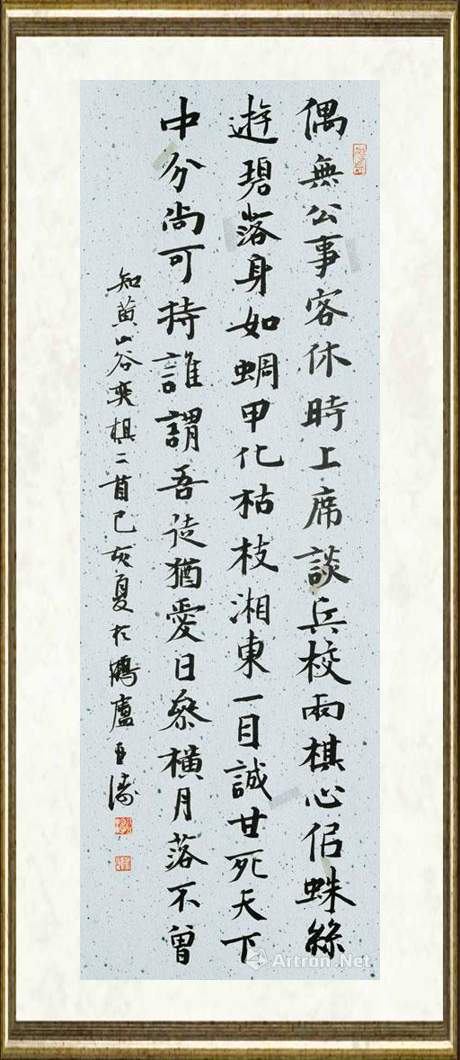 偶無公事客休時上席談兵校兩棋心佀蛛絲
遊碧落身如蜩甲化枯枝湘東一目誠甘死天下
中分尚可持誰謂吾徒猶愛日參橫月落不曾
知黄山谷奕棋二首己亥夏於鶴廬
Artron.Net